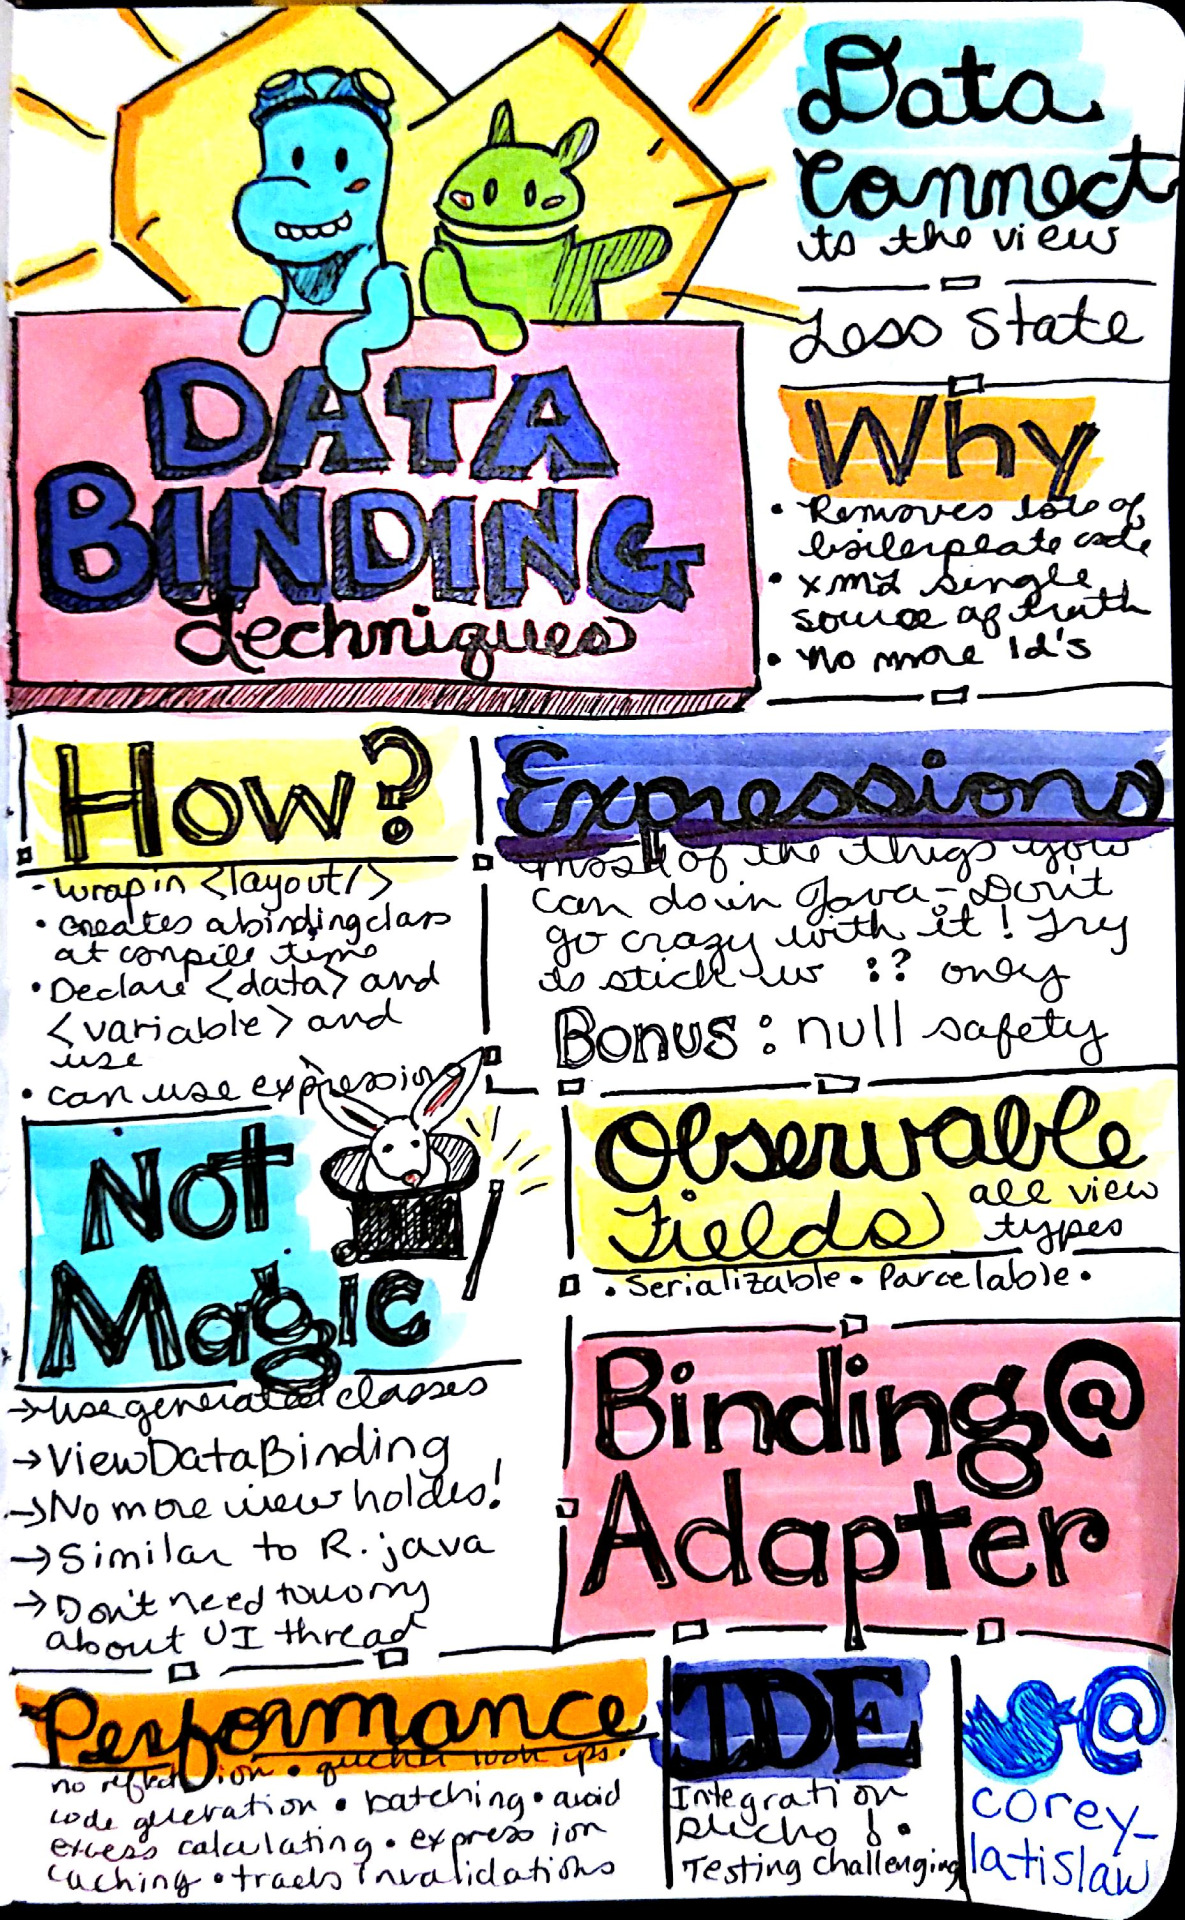 Data
Connect
to the view
Less State
DATA
BINDING
techniques
Why
• Removes lots of
boilerplate code
• XML single
source of truth
• No more Id's
How?
- wrap in <layout/>
• creates a binding class
at compile time
• Declare <data> and
<variable> and
use
• can use expression
Expressions
most of the things you
can do in Java - Don't
go crazy with it! Try
to stick w :? only
Bonus: null safety
Not
Magic
→ use generated classes
→ ViewDataBinding
→ No more view holdes!
→ Similar to R.java
→ Don't need to worry
about UI thread
Observable
Fields all view
types
• Serializable • Parcelable •
Binding@
Adapter
Performance
no reflection • quicker look ups •
code generation • batching • avoid
excess calculating • expression
caching • tracks invalidations
IDE
Integration
!•
Testing challenging
@
corey-
latislaw